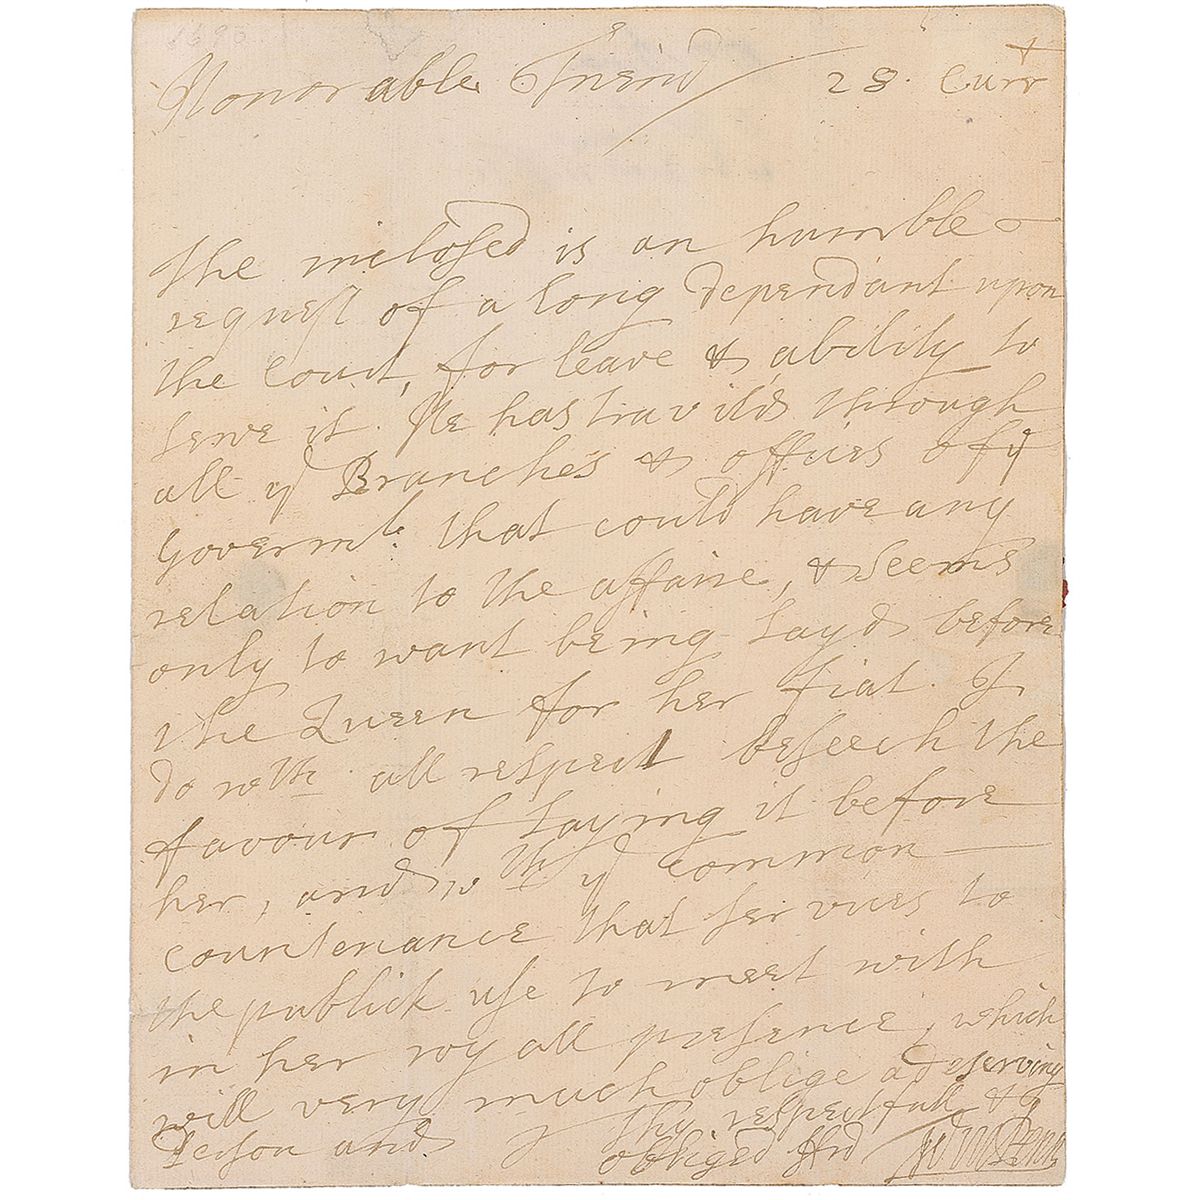 1690
Honorable Friend 28. Curr t
The inclosed is an humble
request of a long dependant upon
the Court, for leave & ability to
serve it. He has travil'd through
all ye Branches & offices of ye
Governmt. that could have any
relation to the affaire, & seems
only to want being Layd before
the Queen for her fiat. I
do wth all respect beseech the
favour of Laying it before
her, and wth ye common
countenance that services to
the publick use to meet with
in her royall presence, which
will very much oblige a deserving
Person and Thy respectfull &
obliged ffrd Wm Penn